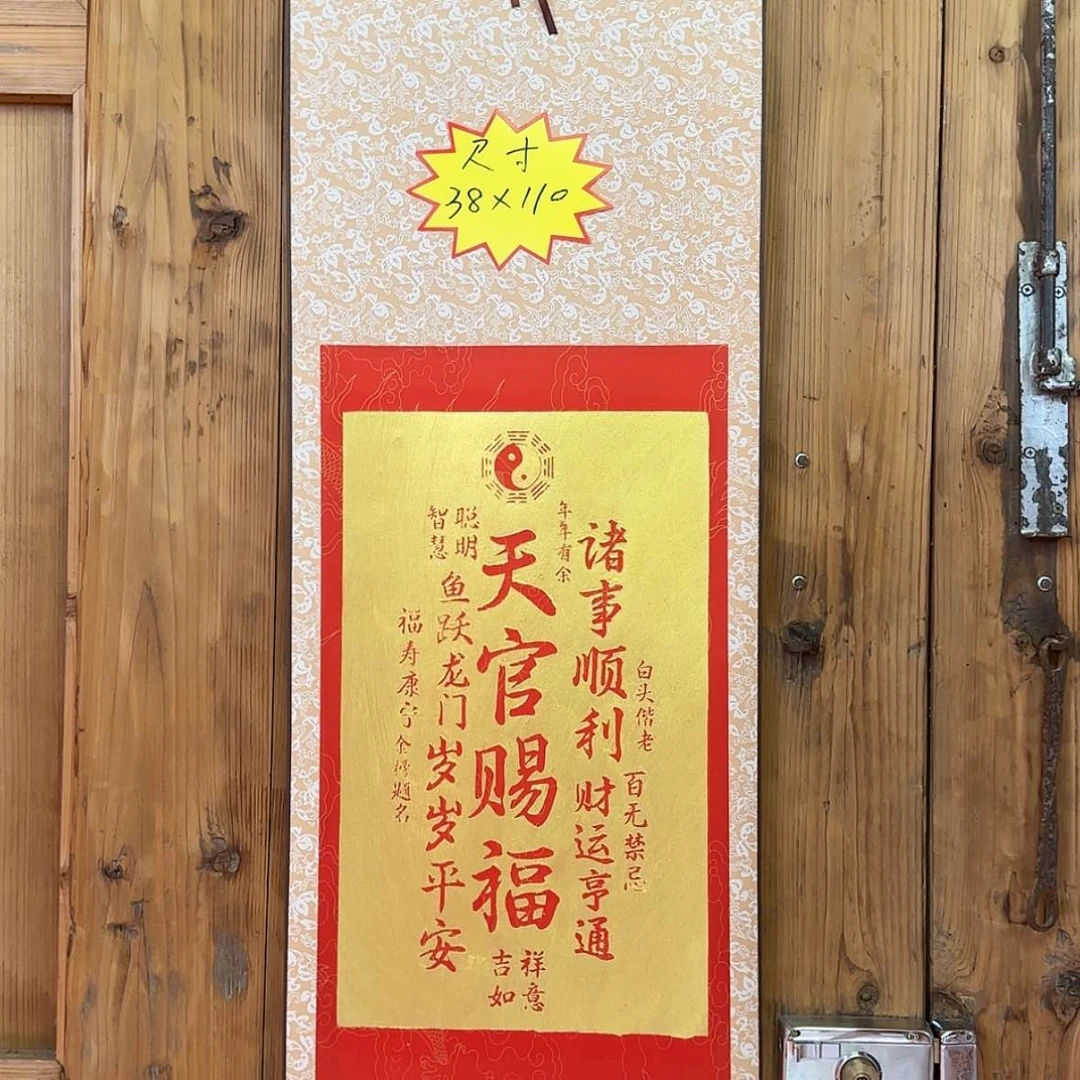 尺寸
38×110
白头偕老
百无禁忌
诸事顺利
财运亨通
年年有余
天官赐福
吉祥
如意
聪明
智慧
鱼跃龙门
岁岁平安
福寿康宁
金榜题名